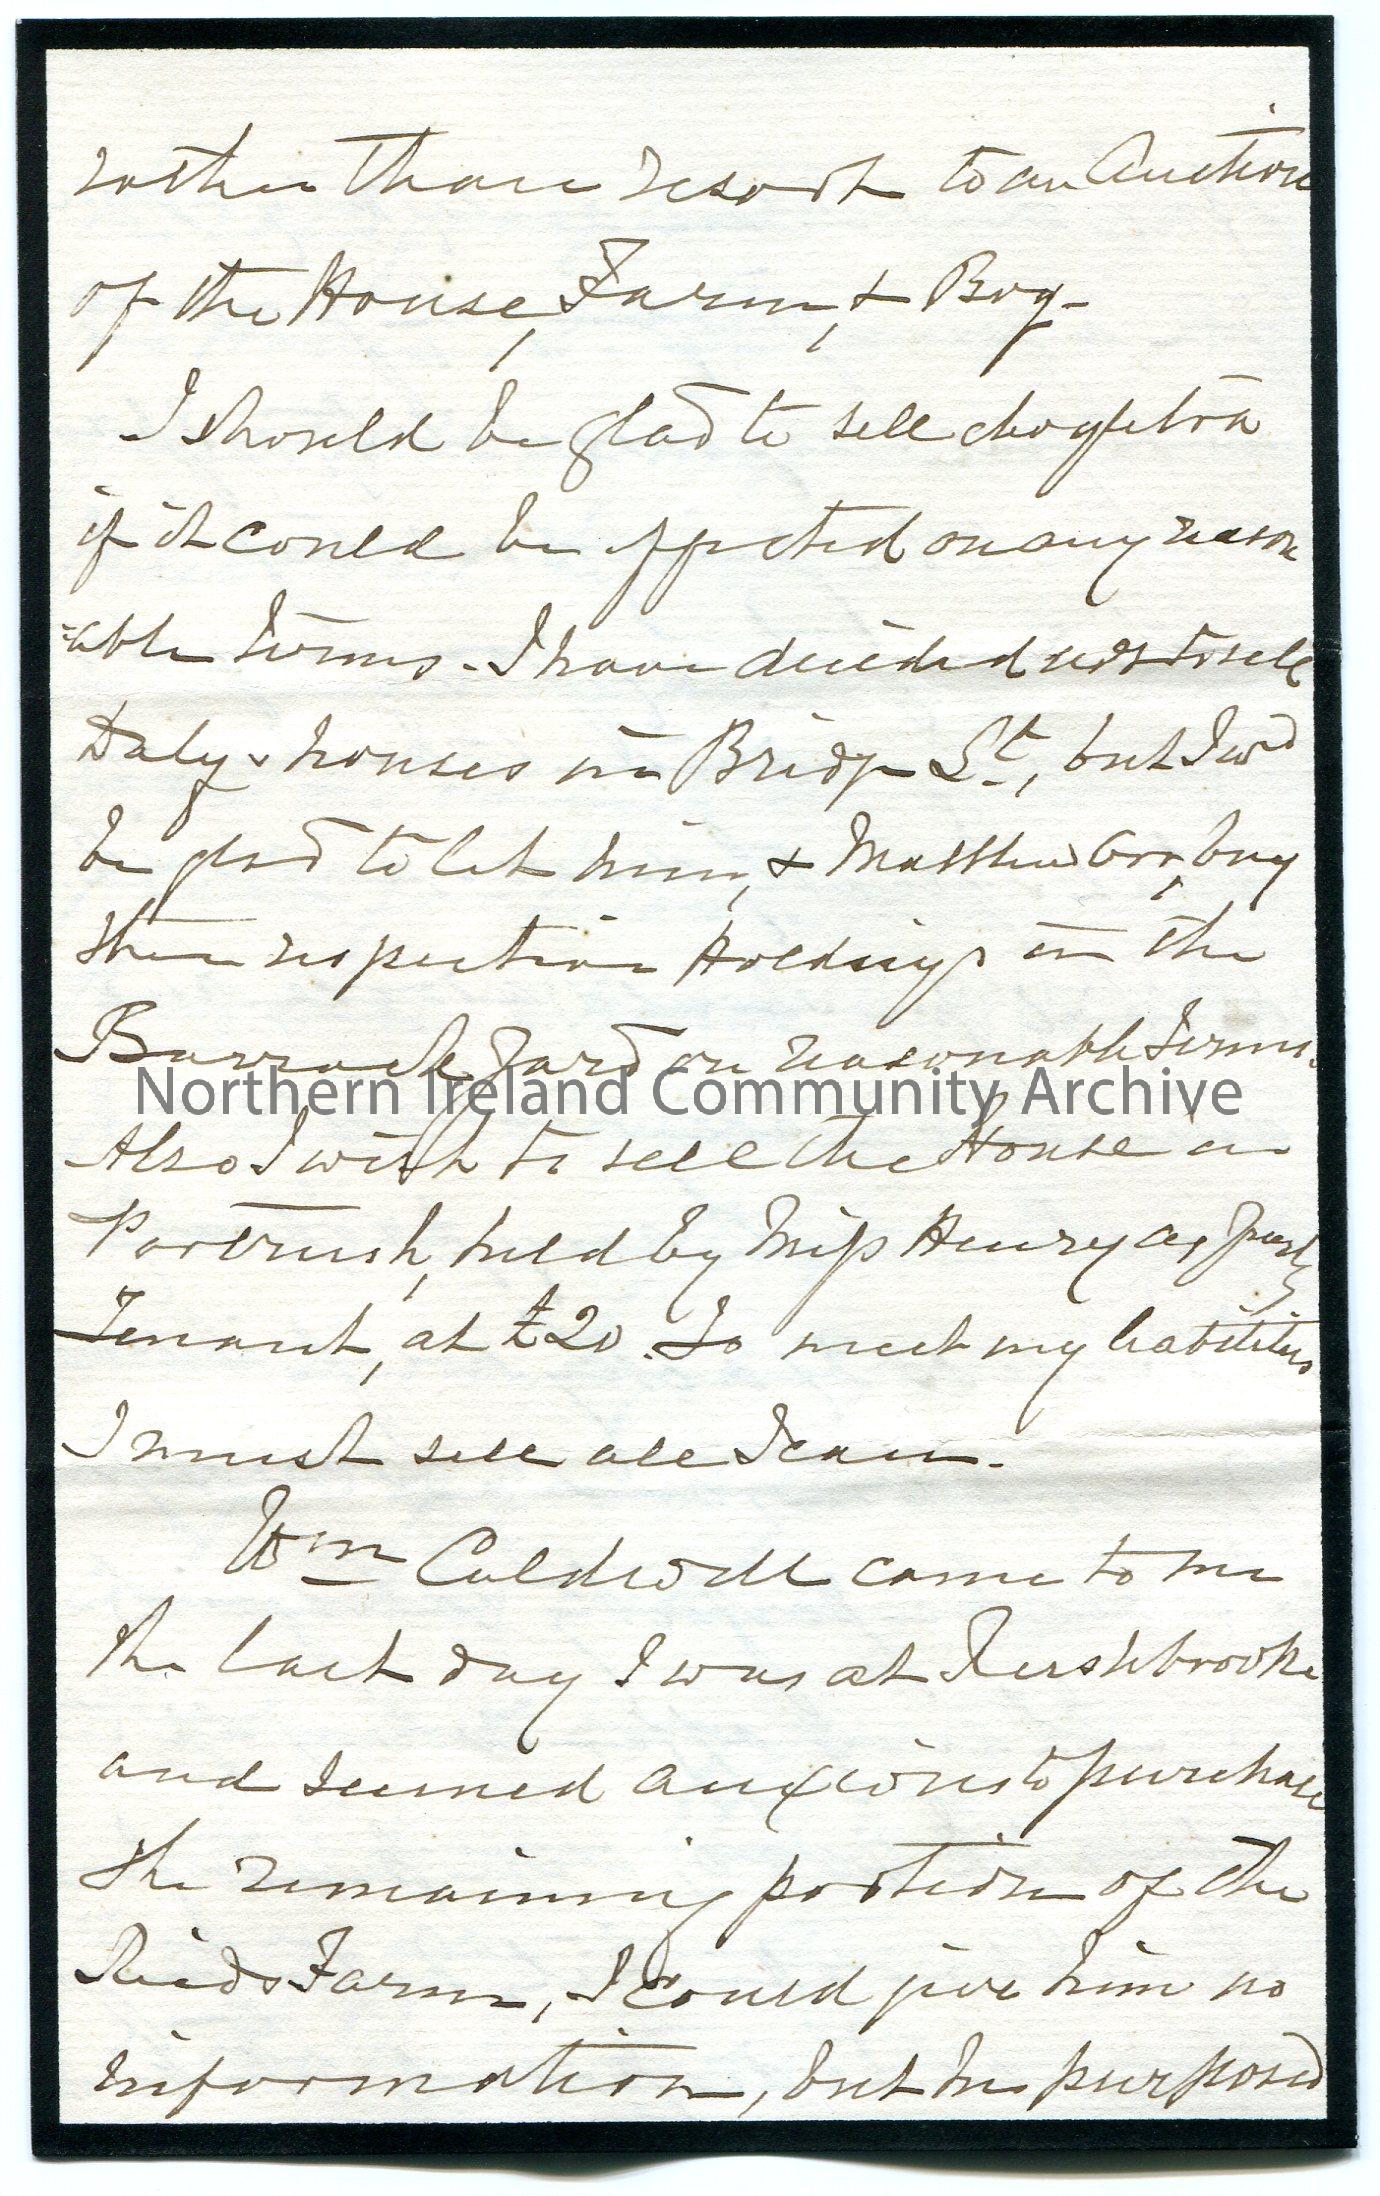 rather than resort to an Auction
of the House, Farm, & Bog -
I should be glad to sell
if it could be effected on any reason
=able terms - I have decided not to sell
Daly's houses in Bridge St, but I wd
be glad to let him, & Matthew Orr, buy
their respective Holdings in the
Barrack Yard on reasonable terms.
Also I wish to sell the House in
Portrush, held by Miss Henry as yearly
Tenant, at £20. To meet my liabilities
I must sell all I can.
Wm Caldwell came to me
the last day I was at Kershbrooke
and seemed anxious to purchase
the remaining portion of the
Reids Farm, I could give him no
information, but he purposed
Northern Ireland Community Archive